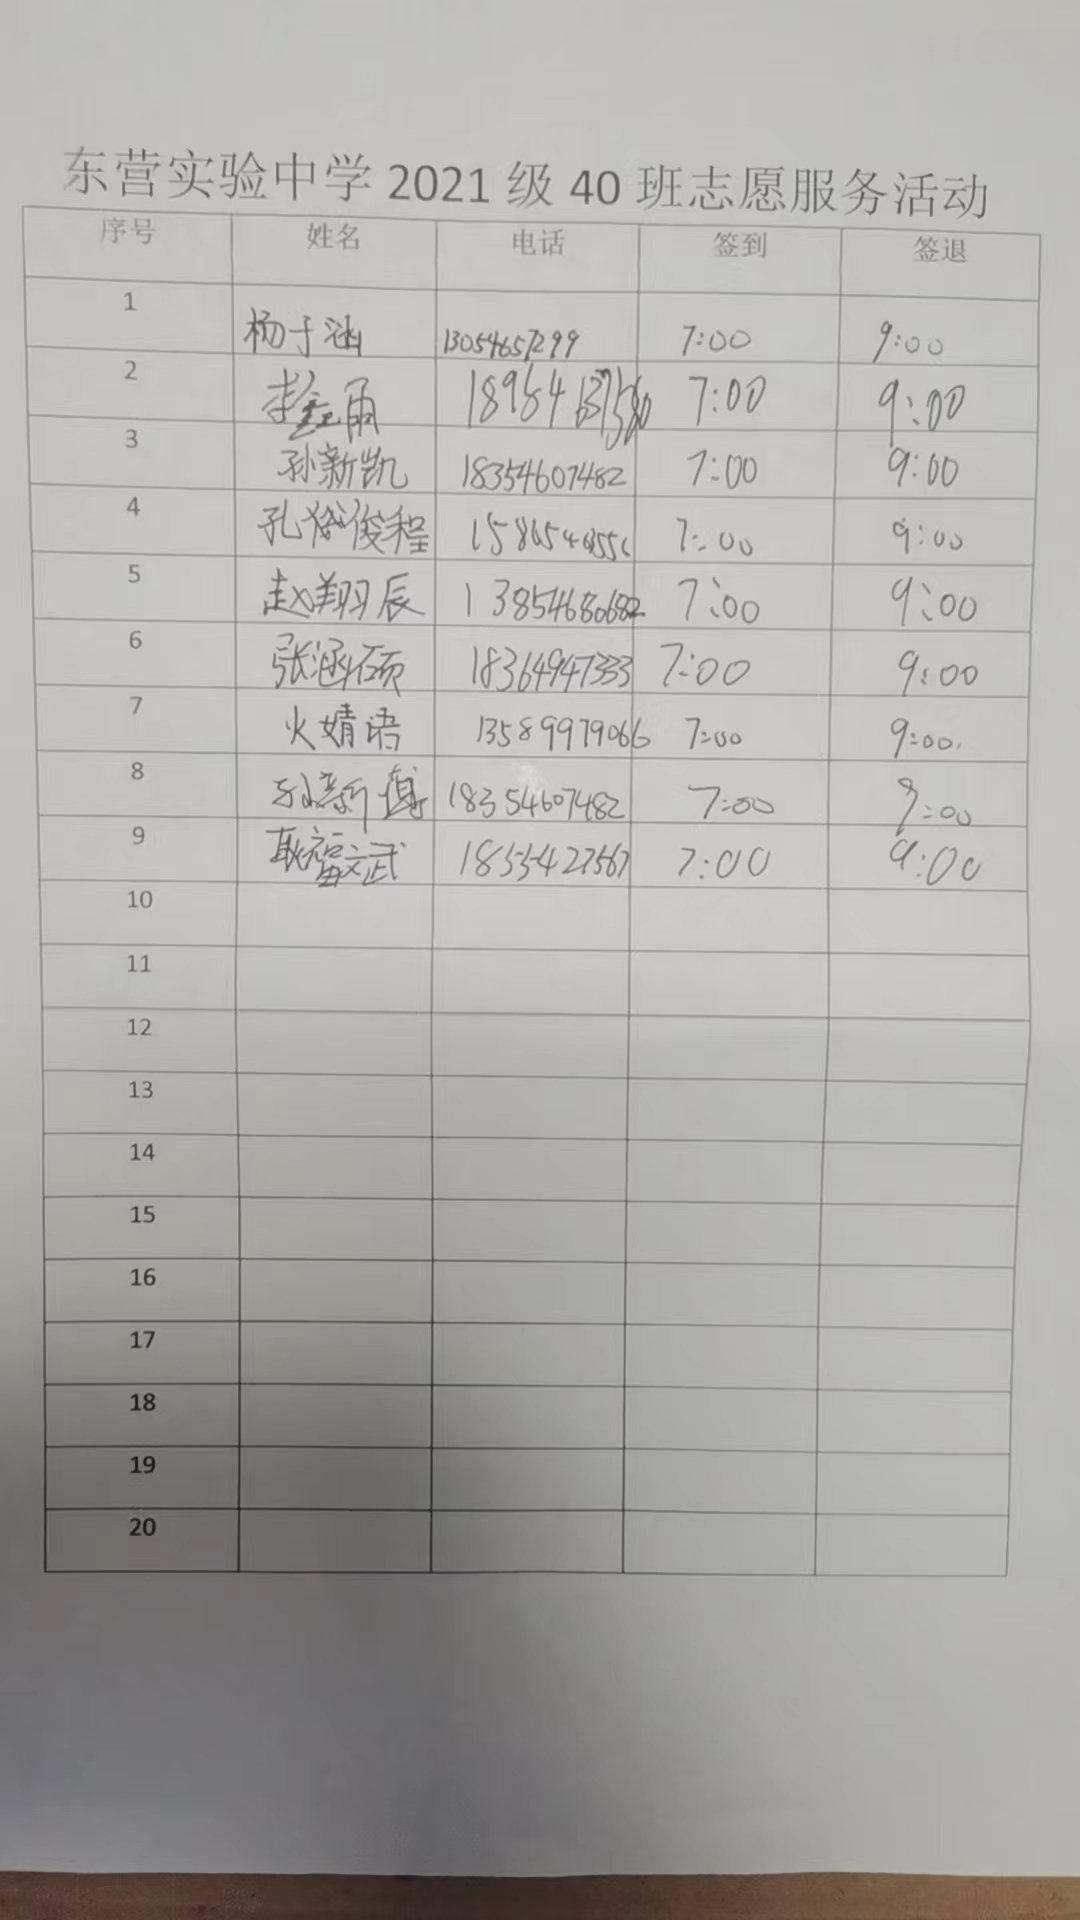 东营实验中学 2021 级 40 班志愿服务活动
序号 姓名 电话 签到 签退
1 杨于涵 13054657299 7:00 9:00
2 李鑫雨 7:00 9:00
3 孙新凯 18354607482 7:00 9:00
4 孔 俊程 7:00 9:00
5 赵翔辰 13854680682 7:00 9:00
6 张涵硕 18364947333 7:00 9:00
7 火婧语 13589979066 7:00 9:00.
8 孙新博 18354607482 7:00 9:00
9 耿福文武 7:00 9:00
10
11
12
13
14
15
16
17
18
19
20